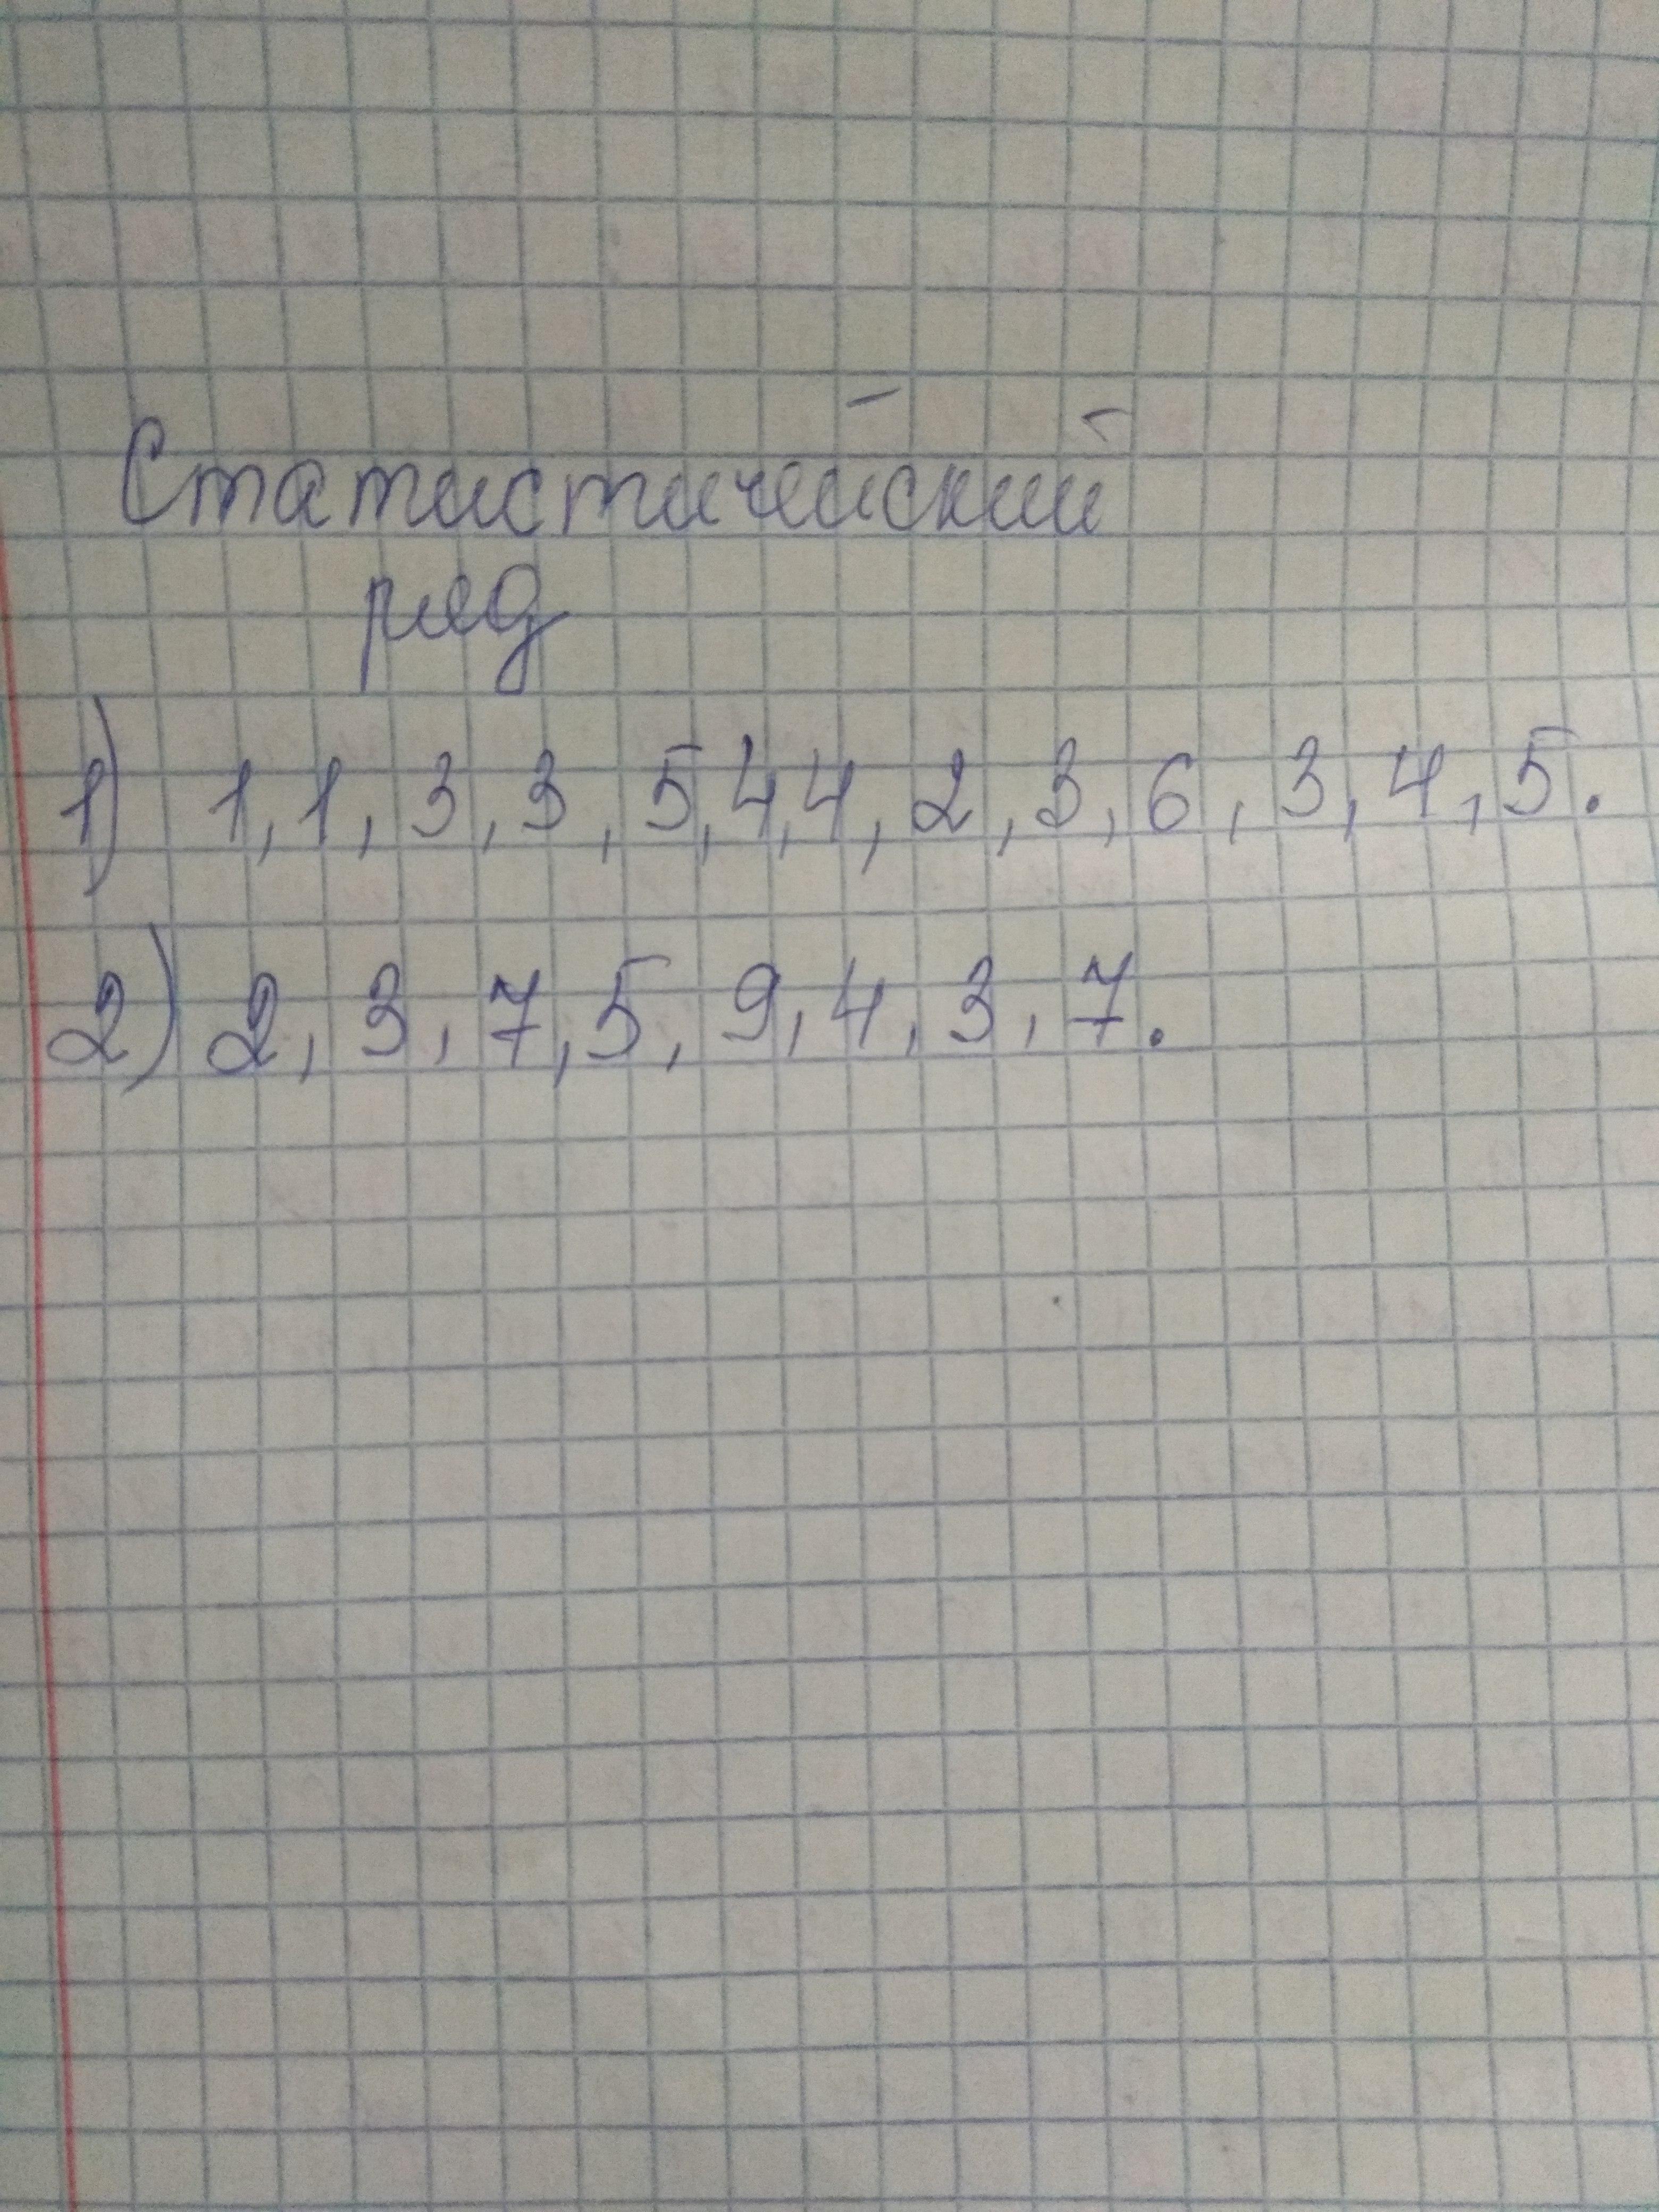 Статистичейский
ряд
1) 1, 1, 3, 3, 5, 4, 4, 2, 3, 6, 3, 4, 5.
2) 2, 3, 7, 5, 9, 4, 3, 7.